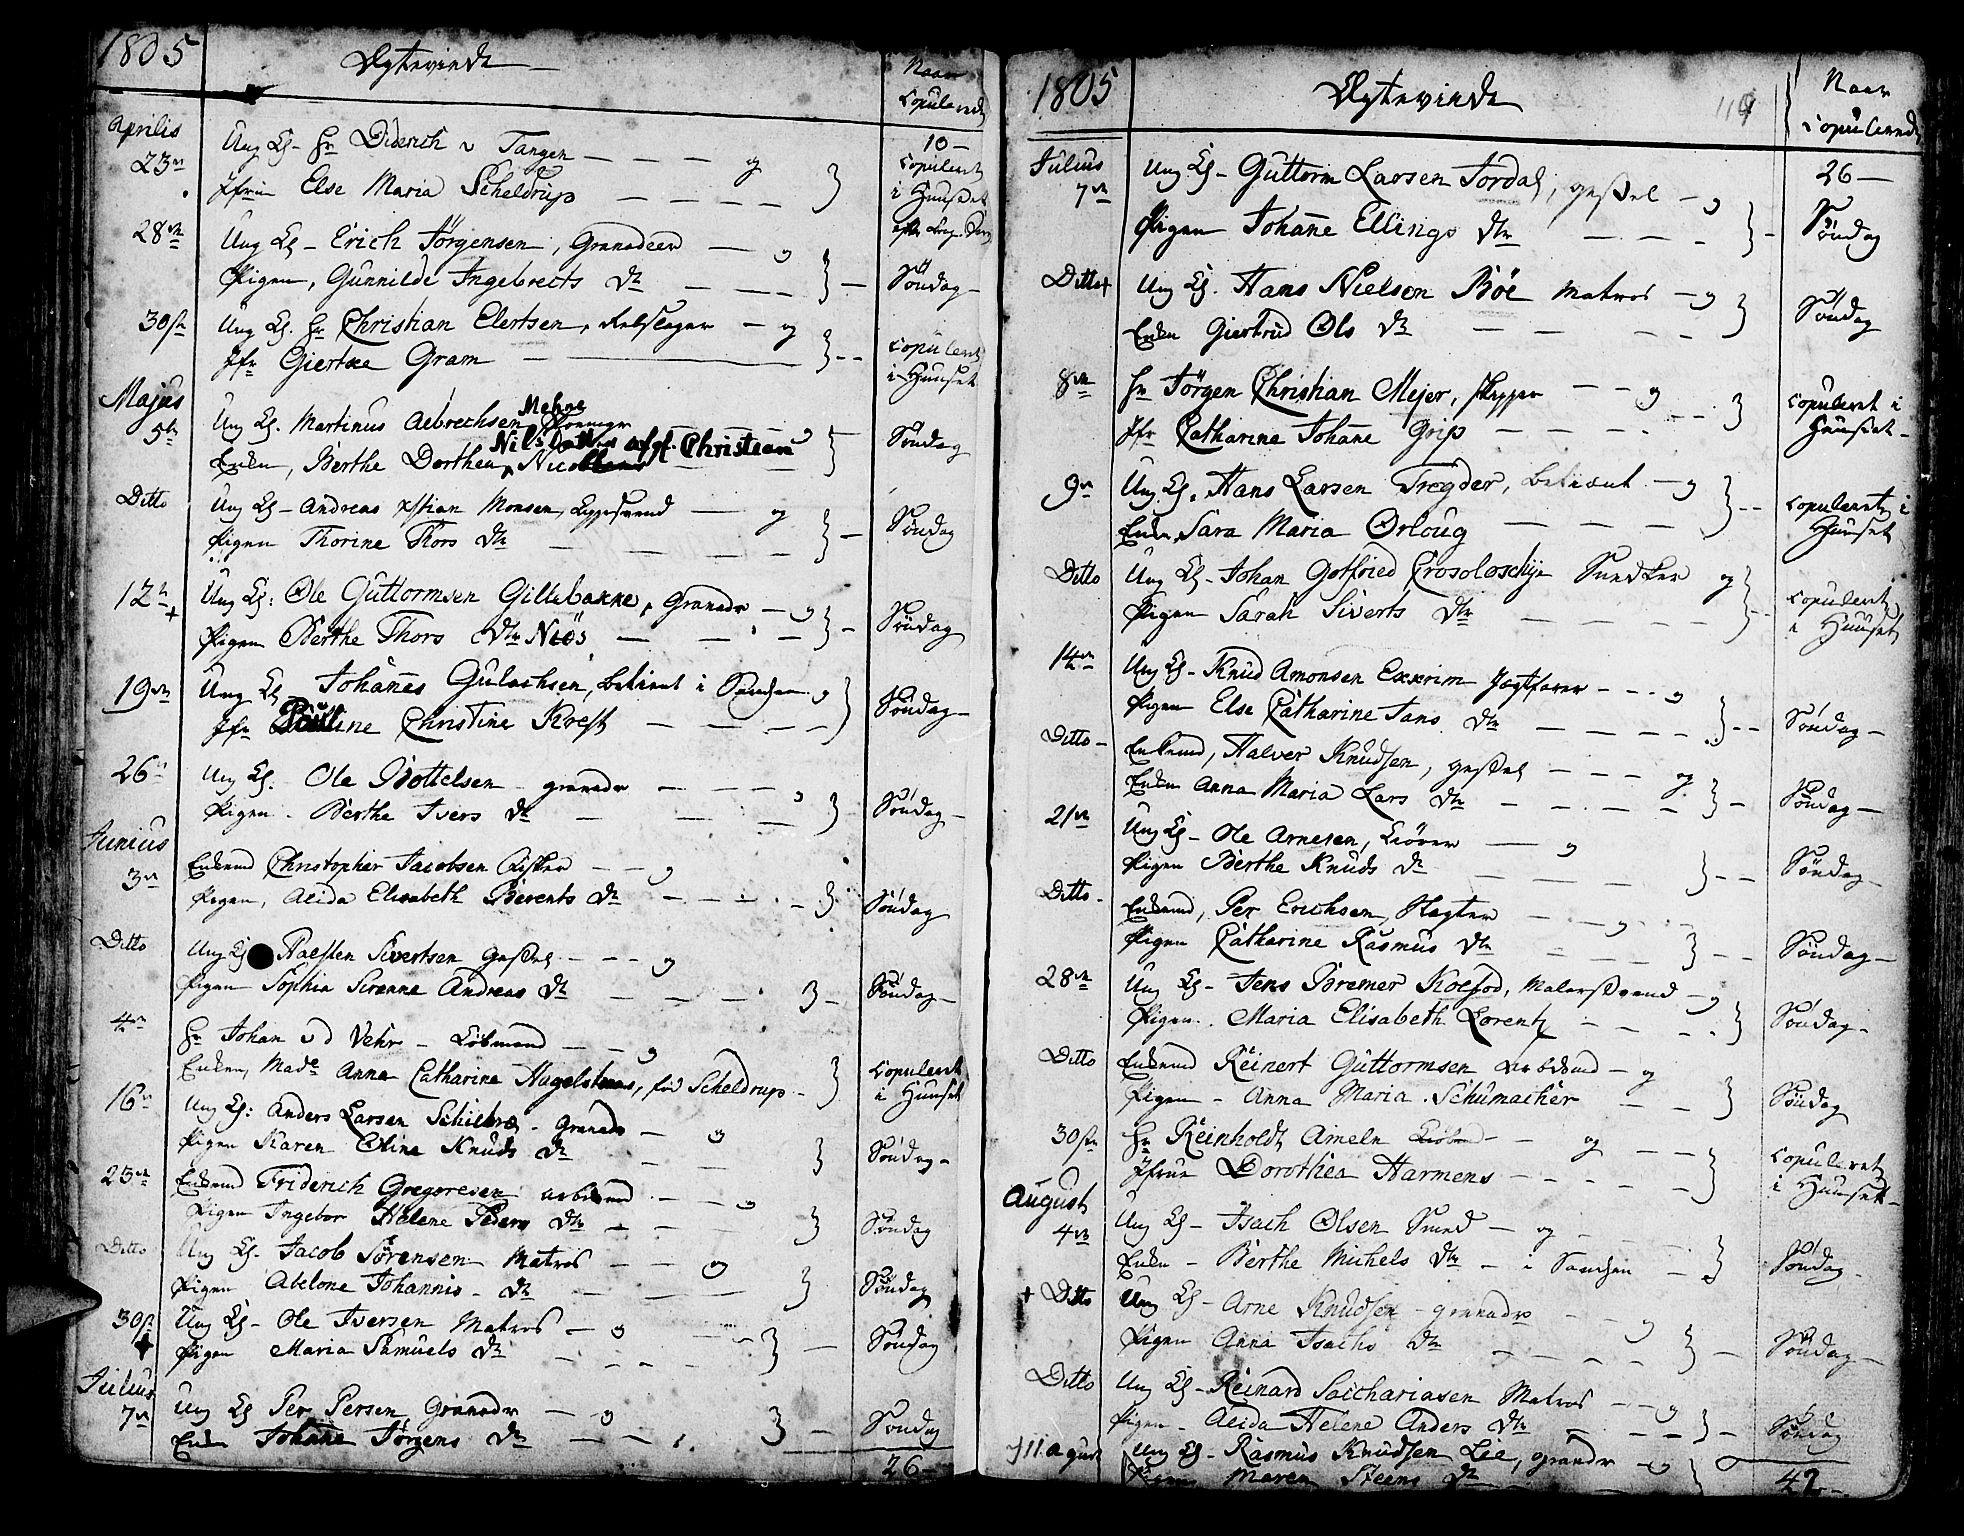 1805
Ægteviede
Naar
Copulerede
Aprilis
10 -
23de Ung K. Hr Diderich v Tangen - - - - og
Jfrue Else Maria Scheldrup - - - -
Copuleret
i Huuset
28de Ung K. Erich Jörgensen, Granadeer - - og
Pigen, Gunnilde Ingebrects Dtr - - - -
Söndag -
30te Ung K. Hr Christian Elertsen, Rebslager - og
Jfr Giertxe Gram
Copuleret
i Huuset
Majus
Mehne
5te Ung K. Martinus Aebrechsen
Nils Datter afgl. Christian
Enken, Berthe Dorthea
Söndag
Ditto Ung K. Andreas xstian Monsen, - og
Pigen Thorine Thors Dtr - - - -
Söndag
12te Ung K: Ole Guttormsen Gillebaxxe, Granadr - og
+
Pigen Berthe Thors Dtr Niös. - - -
Söndag
19de Ung K Johannes Gulachsen, betient i Sandven og
Jfr Pauline Christine Koeft - - - -
Söndag -
26de Ung K: Ole Bottelsen - granadr - - - og
Pigen. Berthe Ivers Dtr - - -
Söndag -
Junius
3de Enkemd Christopher Jacobsen Fisker - - og
Pigen, Alida Elisabeth Berents Dtr - - - -
Söndag
Ditto Ung K Paelsten Sivertsen Gesxel - - - og
Pigen Sophia Sirenne Andreas Dtr - - - -
Söndag -
4de Hr Johan v d Vehr - Kiöbmand - - og
Enken, Made Anna Catharine Hagelsteens, föd Scheldrup -
Copuleret
i Huuset
16de Ung K: Anders Larsen Schielbræ - Granadr - og
Pigen Karen Oline Knuds Dtr - -
Söndag -
23de Enkemd Friderich Gregoresen arbmd - - og
Pigen Ingebor Helene Peders Dtr - - -
Söndag
Ditto Ung K. Jacob Sörensen Matros - - og
Pigen Abelone Johannis - Dtr - - -
Söndag
30te Ung K - Ole Iversen Matros - og
+
Pigen Maria Samuels Dtr - - - -
Söndag
Julius
7de Ung K Per Persen Granadr - og
Enken Johanne Jörgens Dtr - - -
Söndag
26 -
1805
Ægteviede
119
Naar
Copulerede
Julius
26 -
7de Ung K - Guttorm Larsen Jordal, gesxel - og
Pigen Johanne Ellings Dtr - - -
Söndag
Ditto+ Ung K. Hans Nielsen Böe Matros - og
Enken Giertrud Ols Dtr - - - -
Söndag
8de Hr Jörgen Christian Mejer, Skipper - - og
Jfr Catharine Johanne Grip - - - -
Copuleret i
Huuset -
9de Ung K. Hans Larsen Tregder, betient - og
Enken Sara Maria Orloug - - - -
Copuleret i
Huuset
Ditto Ung K - Johan Gotfried Snedker og
Pigen Sarah Siverts Dtr - - - -
Copuleret
i Huuset
14de Ung K - Knud Amonsen Exxrim Jegtfarer - - - og
Pigen Else Catharine Jans Dtr - - - -
Söndag -
Ditto - Enkemd, Halver Knudsen, gesxel - - - og
Enken Anna Maria Lars Dtr - - - -
Söndag -
21de Ung K - Ole Arnesen, Kiörer - og
Pigen Berthe Knuds Dtr - - - -
Söndag -
Ditto - Enkemd, Per Erichsen, Slagter - - - og
Pigen Catharine Rasmus Dtr - - - -
Söndag -
28de Ung K - Jens Bremer Koefod, Malersvend - og
Pigen. Maria Elisabeth Lorentz - - - -
Söndag -
Ditto Enkemd Reinert Guttormsen Arbdsmd - og
Pigen - Anna Maria Schumacher - -
Söndag
30te Hr Reinholdt Ameln Kiöbmd - - og
Jfrue Dorothea Harmens - - - - -
Copuleret
i Huuset -
August
4de Ung K - Isach Olsen Smed - og
Enken - Berthe Michels Dtr - i Sandven -
Söndag -
+ Ditto Ung K - Arne Knudsen - granadr - - og
Pigen Anna Isachs Dtr - - - -
Söndag -
Ditto Ung K - Reinard Sachariasen Matros - - og
Pigen - Alida Helene Anders Dtr - - - -
Söndag
11. agust Ung K - Rasmus Knudsen Lie, grandr - og
Pigen Maren Steens Dtr - - -
42 -